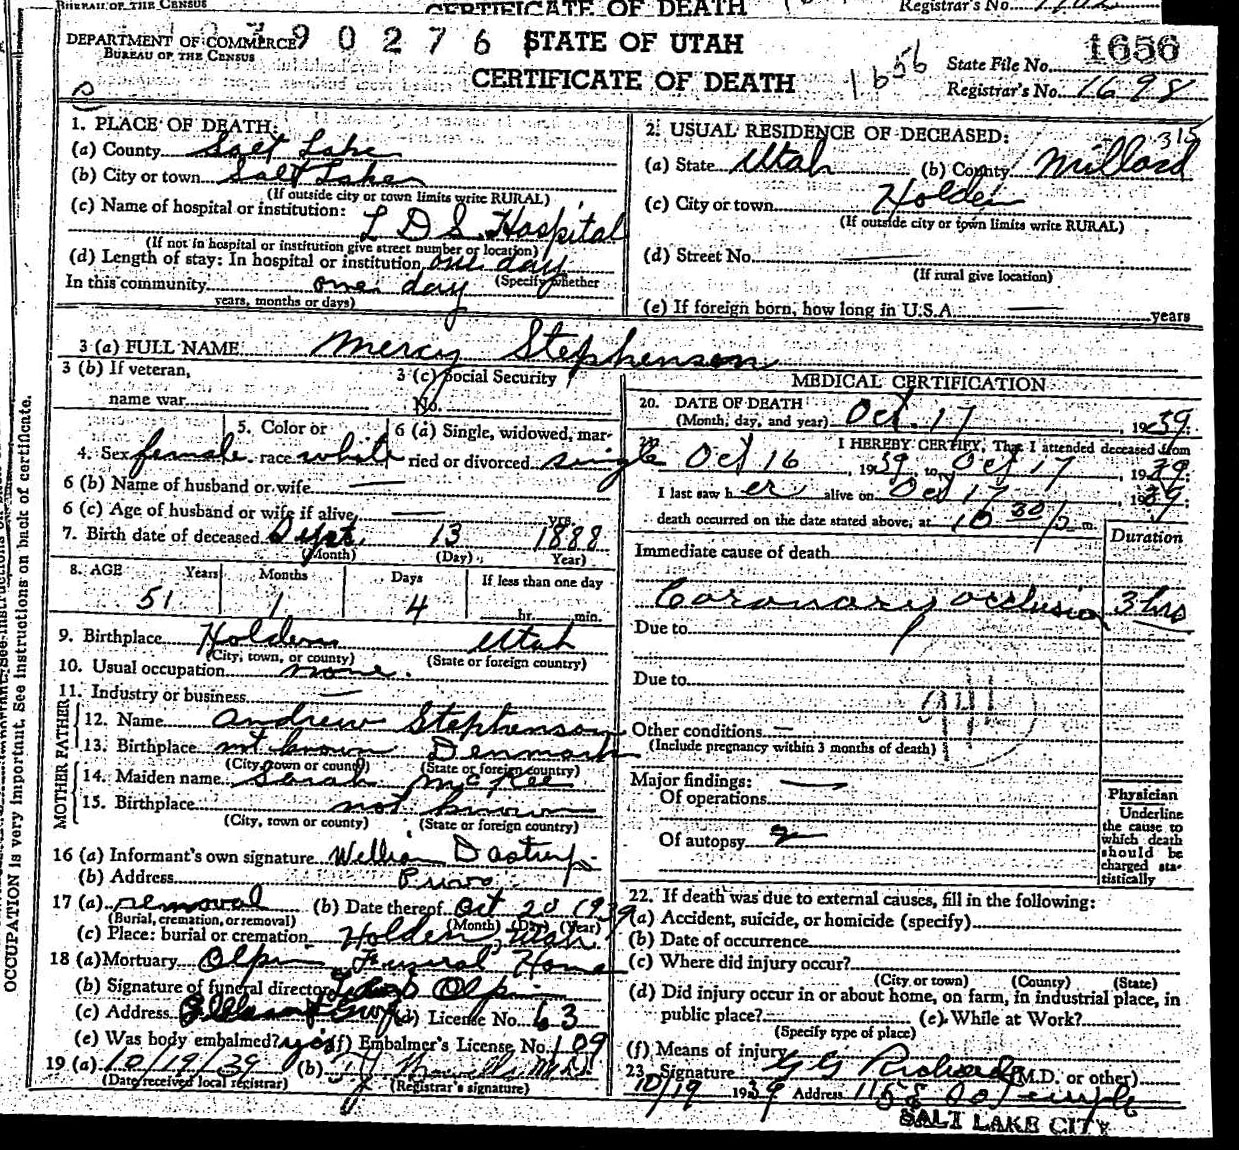 BUREAU OF THE CENSUS CERTIFICATE OF DEATH Registrar's No.
DEPARTMENT OF COMMERCE 90276 STATE OF UTAH 1656
BUREAU OF THE CENSUS
CERTIFICATE OF DEATH 1656 State File No.
Registrar's No. 1698
1. PLACE OF DEATH:
(a) County Salt Lake
(b) City or town Salt Lake
(If outside city or town limits write RURAL)
(c) Name of hospital or institution:
L D S Hospital
(If not in hospital or institution give street number or location)
(d) Length of stay: In hospital or institution one day
(Specify whether
In this community one day
years, months or days)
2. USUAL RESIDENCE OF DECEASED: 315
(a) State Utah (b) County Millard
(c) City or town Holden
(If outside city or town limits write RURAL)
(d) Street No.
(If rural give location)
(e) If foreign born, how long in U.S.A. years
3 (a) FULL NAME Mercy Stephenson
3 (b) If veteran,
name war
3 (c) Social Security
No.
4. Sex female 5. Color or race white
6 (a) Single, widowed, married or divorced single
6 (b) Name of husband or wife
6 (c) Age of husband or wife if alive yrs.
7. Birth date of deceased Sept. 13 1888
(Month) (Day) Year)
8. AGE Years Months Days If less than one day
51 1 4 hr. min.
9. Birthplace Holden Utah
(City, town, or county) (State or foreign country)
10. Usual occupation none.
11. Industry or business
FATHER
12. Name Andrew Stephenson
13. Birthplace not known Denmark
(City, town or county) (State or foreign country)
MOTHER
14. Maiden name Sarah McKee
15. Birthplace not known
(City, town or county) (State or foreign country)
16 (a) Informant's own signature Dastrup
(b) Address Provo.
17 (a) removal (b) Date thereof Oct 20 1939
(Burial, cremation, or removal) (Month) (Day) (Year)
(c) Place: burial or cremation Holden, Utah.
18 (a) Mortuary Olpin Funeral Home
(b) Signature of funeral director Olpin
(c) Address Pleasant Grove (d) License No. 63
(e) Was body embalmed? yes (f) Embalmer's License No. 109
19 (a) 10/19/39 (b)
(Date received local registrar) (Registrar's signature)
MEDICAL CERTIFICATION
20. DATE OF DEATH
(Month, day, and year) Oct. 17, 1939
I HEREBY CERTIFY, That I attended deceased from
Oct 16, 1939, to Oct 17, 1939.
I last saw her alive on Oct 17 1939
death occurred on the date stated above, at 10 30 p m.
Duration
Immediate cause of death
Coronary occlusion 3 hrs
Due to
Due to
Other conditions
(Include pregnancy within 3 months of death)
Major findings:
Of operations
Of autopsy
Physician
Underline
the cause to
which death
should be
charged sta-
tistically
22. If death was due to external causes, fill in the following:
(a) Accident, suicide, or homicide (specify)
(b) Date of occurrence
(c) Where did injury occur?
(City or town) (County) (State)
(d) Did injury occur in or about home, on farm, in industrial place, in
public place? (e) While at Work?
(Specify type of place)
(f) Means of injury
23. Signature G G Richards (M.D. or other)
10/19 1939 Address 115 So Temple
SALT LAKE CITY
OCCUPATION is very important. See instructions on back of certificate.